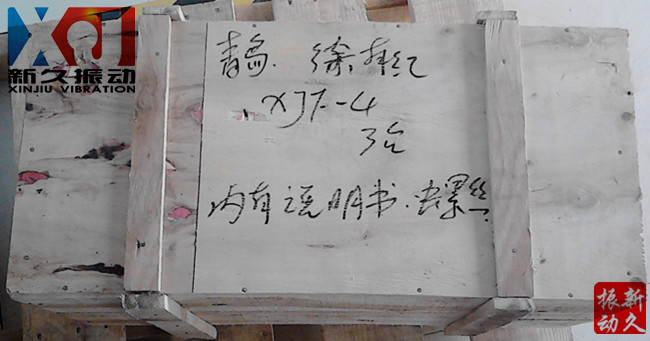 新久振动
XINJIU VIBRATION
青岛. 徐
XJF-4
3台
内有说明书. 螺丝
新久
振动